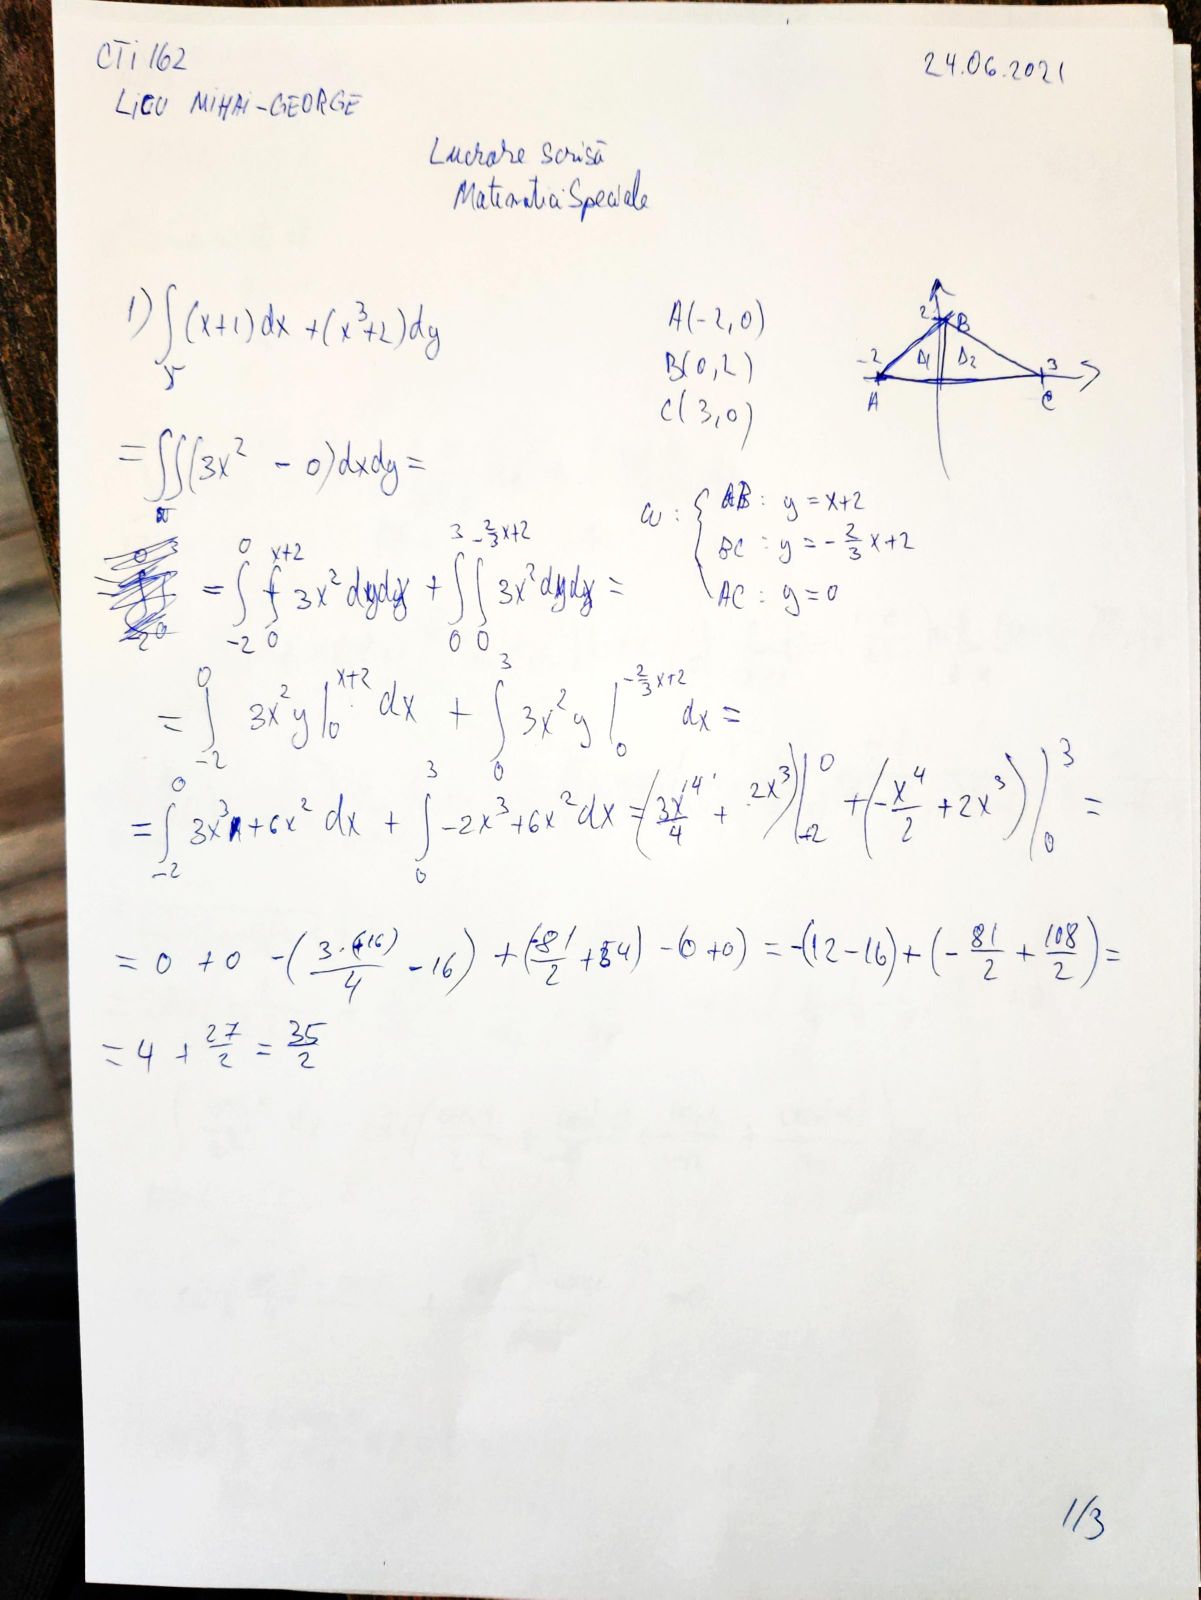 CTi 162
24.06.2021
LiCU MiHAi-GEORGE
Lucrare scrisă
Matematici Speciale
1) ∫γ (x+1)dx + (x³+2)dy
A(-2,0)
B(0,2)
C(3,0)
2 B
-2 Δ1 Δ2 3
A C
= ∬(3x² - 0)dxdy =
ω: { AB: y = x+2
BC: y = -2/3 x+2
AC: y = 0
= ∫_{-2}^{0} ∫_{0}^{x+2} 3x² dydx + ∫_{0}^{3} ∫_{0}^{-2/3 x+2} 3x² dydx =
= ∫_{-2}^{0} 3x²y |_{0}^{x+2} dx + ∫_{0}^{3} 3x²y |_{0}^{-2/3 x+2} dx =
= ∫_{-2}^{0} 3x³ + 6x² dx + ∫_{0}^{3} -2x³ + 6x² dx = (3x⁴/4 + 2x³) |_{-2}^{0} + (-x⁴/2 + 2x³) |_{0}^{3} =
= 0 + 0 - (3·(+16)/4 - 16) + (-81/2 + 54) - (0+0) = -(12-16) + (-81/2 + 108/2) =
= 4 + 27/2 = 35/2
1/3